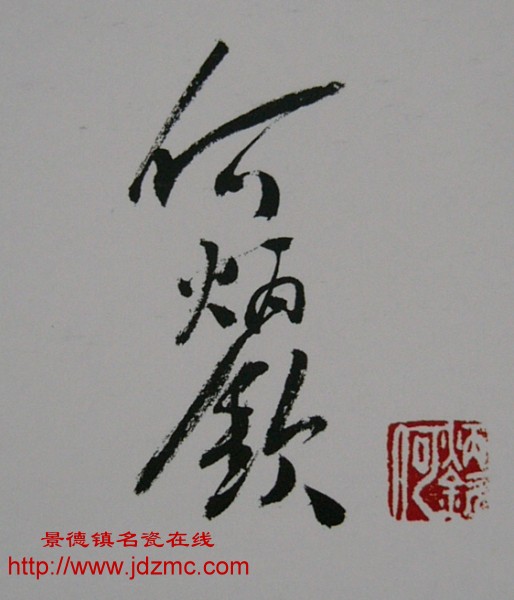 何炳钦
何炳钦
景德镇名瓷在线
http://www.jdzmc.com